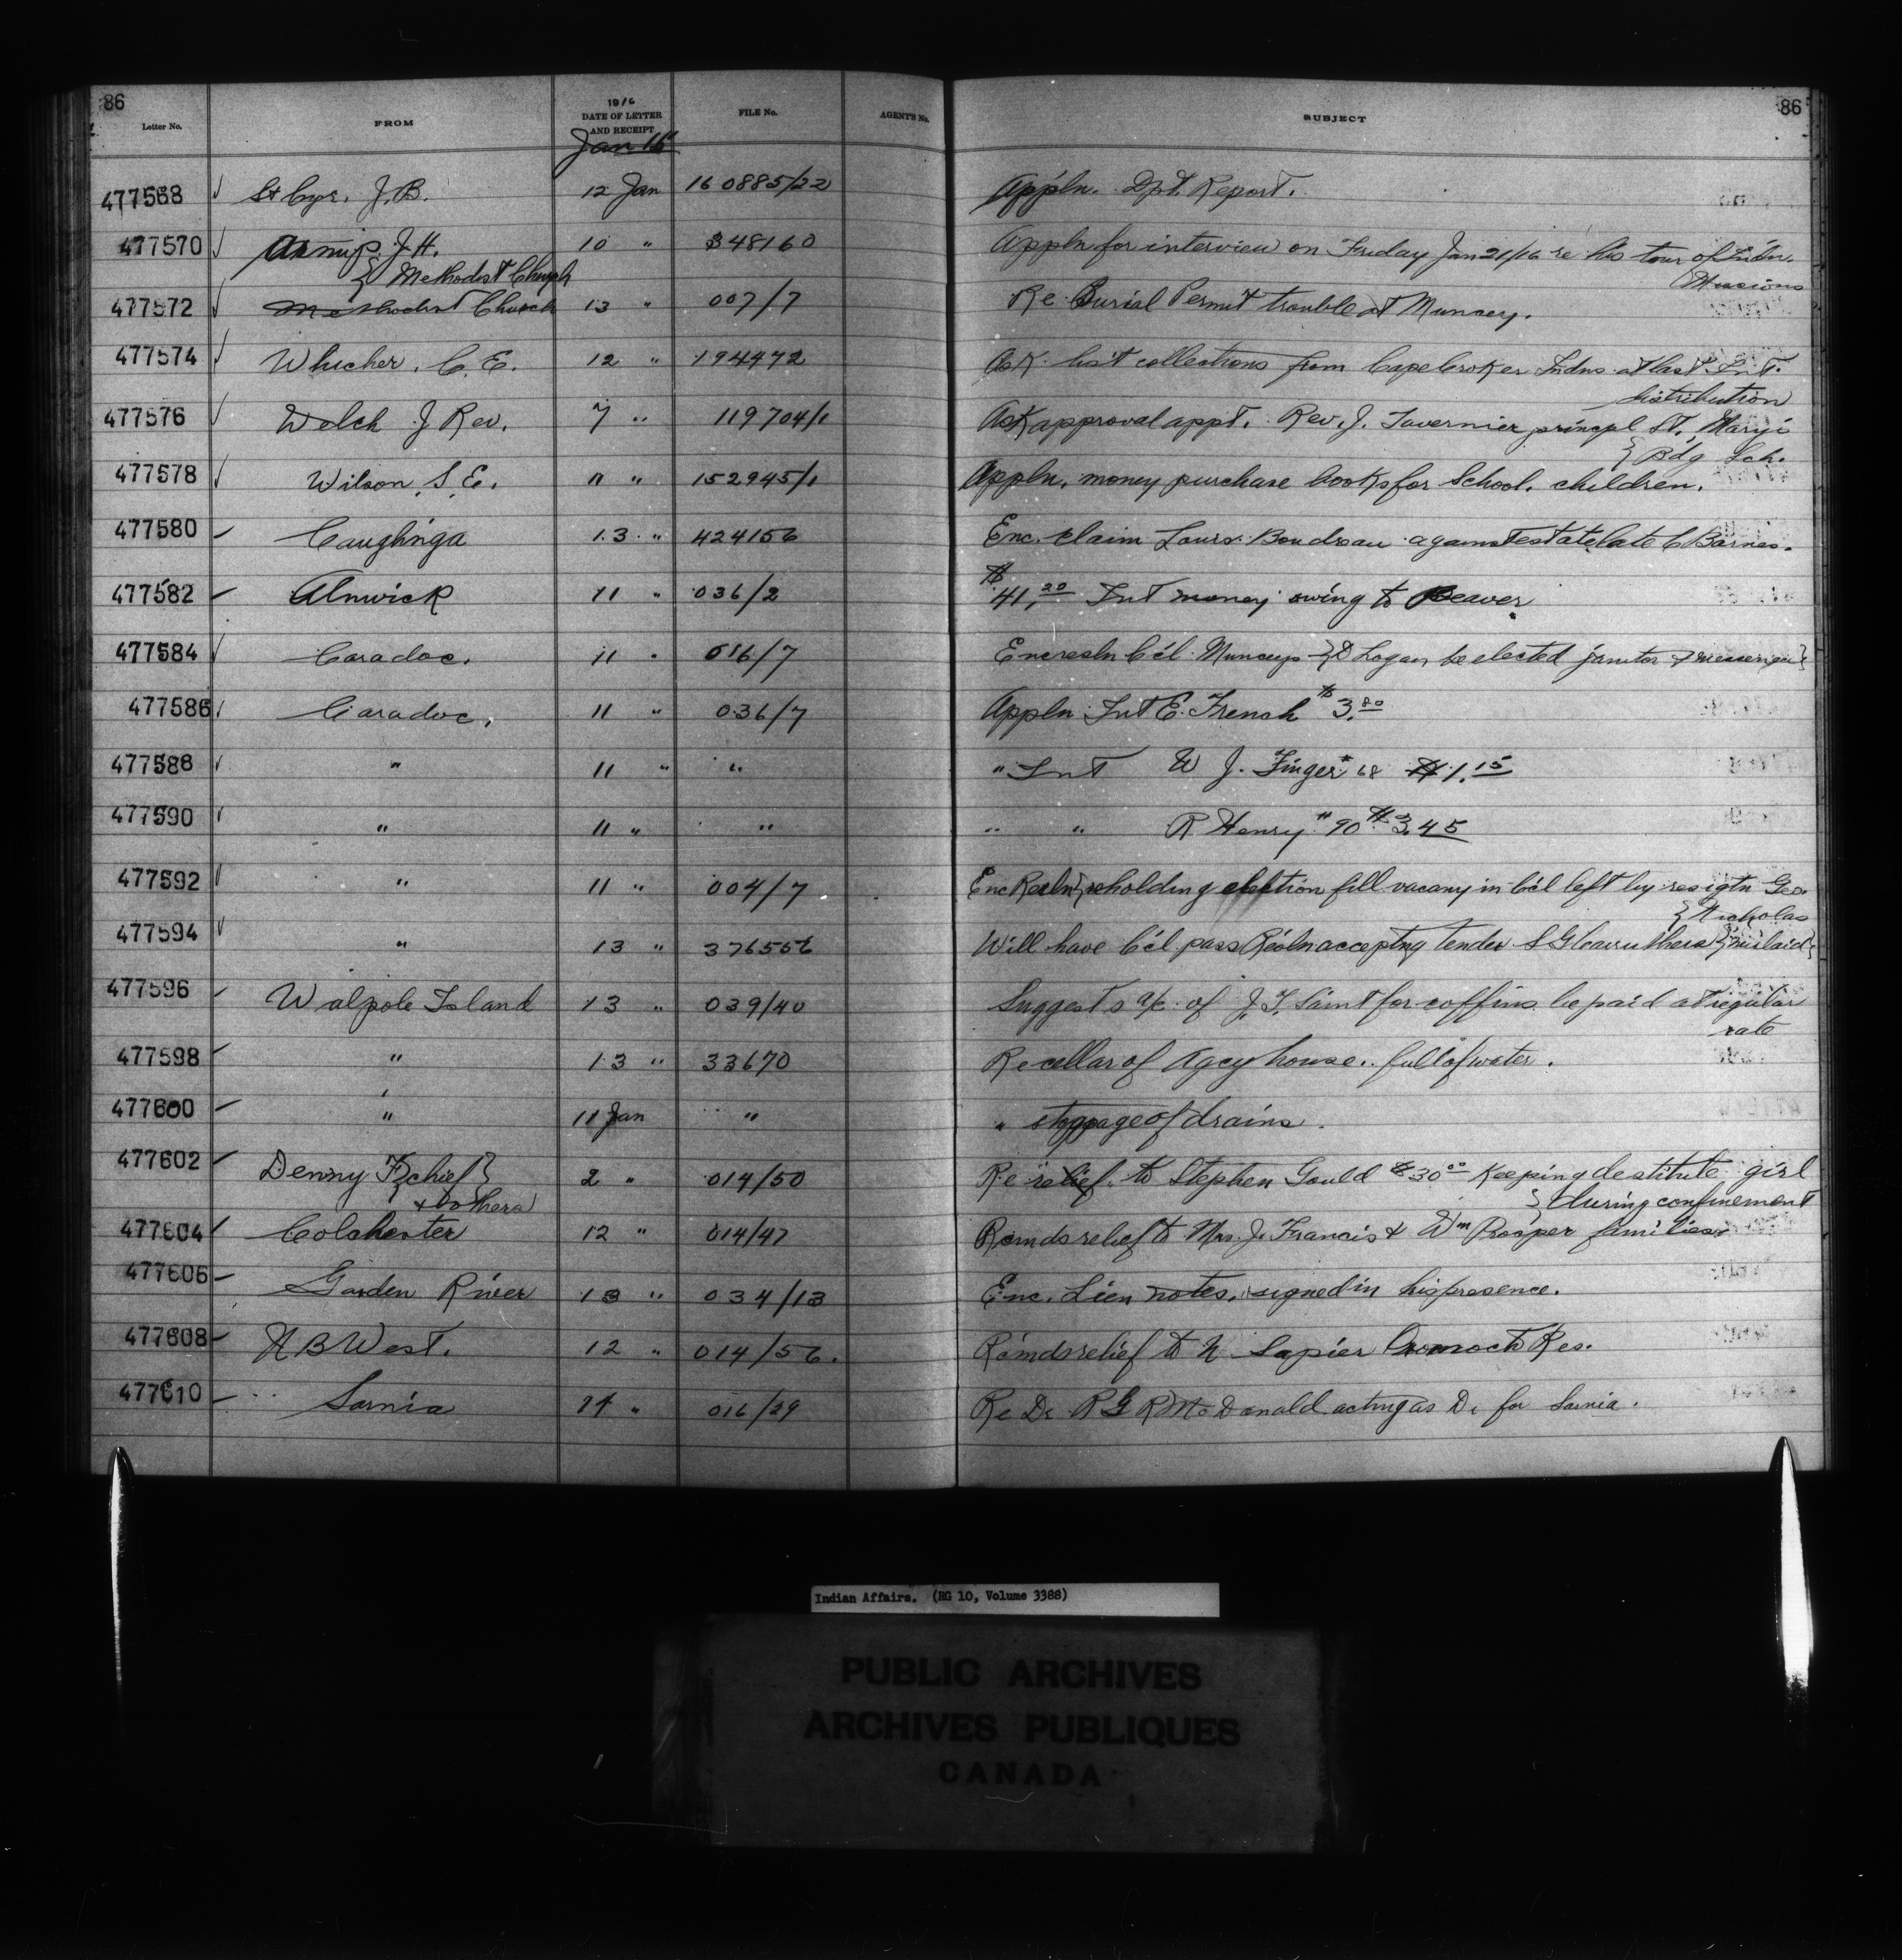 86 86
Letter No. FROM 1916 DATE OF LETTER AND RECEIPT FILE No. AGENT'S No. SUBJECT
Jan 15
477568 St Cyr. J.B. 12 Jan 160885/22 Appln. Dpt. Report.
477570 J.H. 10 " 348160 Appln for interview on Friday Jan 21/16 re his tour of Indn.
{ Methodist Church Missions
477572 Methodist Church 13 " 007/7 Re Burial Permit trouble at Muncey.
477574 Whicher, C.E. 12 " 194472 Ask list collections from Cape Croker Indns at last Int.
distribution
477576 Welch J Rev. 7 " 119704/1 Ask approval appt. Rev. J. Tavernier principl St. Mary's
{ Bdg Sch.
477578 Wilson, S.E. 11 " 152945/1 Appln. money purchase books for School children.
477580 Caughnga 13 " 424156 Enc. claim Louis Boudreau against estate late C Barnes.
477582 Alnwick 11 " 036/2 $41.20 Int money owing to Beaver
477584 Caradoc. 11 " 016/7 Enc resln C'cl Munceys {D Logan be elected janitor & messenger}
477586 Caradoc. 11 " 036/7 Appln Int E. French $3.80
477588 " 11 " " " Int W J. Finger #68 $1.15
477590 " 11 " " " " R Henry #90 $3.45
477592 " 11 " 004/7 Enc Resln {re holding election fill vacany in C'cl left by resigtn Geo.
{ Nicholas
477594 " 13 " 376556 Will have C'cl pass Resln accepting tender S G Carruthers {mislaid}
477596 Walpole Island 13 " 039/40 Suggests a/c of J. T. Saint for coffins be paid at regular
rate
477598 " 13 " 33670 Re cellar of Agcy house. full of water.
477600 " 11 Jan " " stoppage of drains.
477602 Denny F chief } 2 " 014/50 Re relief to Stephen Gould $30.00 Keeping destitute girl
& others } during confinement
477604 Colchester 12 " 014/47 Rcmds relief to Mrs. J. Francis & Wm Prosper families.
477606 Garden River 13 " 034/13 Enc. Lien notes, signed in his presence.
477608 N B West. 12 " 014/56. Rcmds relief to N Sapier Oromocto Res.
477610 Sarnia 14 " 016/29 Re Dr R G R McDonald acting as Dr for Sarnia.
Indian Affairs. (RG 10, Volume 3388)
PUBLIC ARCHIVES
ARCHIVES PUBLIQUES
CANADA